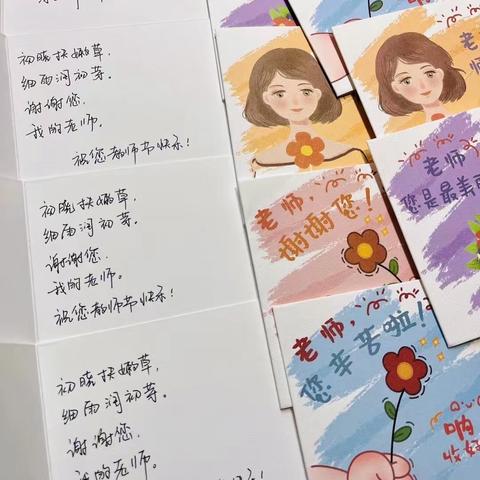 初晓扶嫩草，
细雨润初芽。
谢谢您，
我的老师。
祝您教师节快乐！
初晓扶嫩草，
细雨润初芽。
谢谢您，
我的老师。
祝您教师节快乐！
初晓扶嫩草，
细雨润初芽。
谢谢您，
我的老师。
乐！
老师，
谢谢您！
老师，
您辛苦啦！
哟
收好
老
师
老师
您是最美